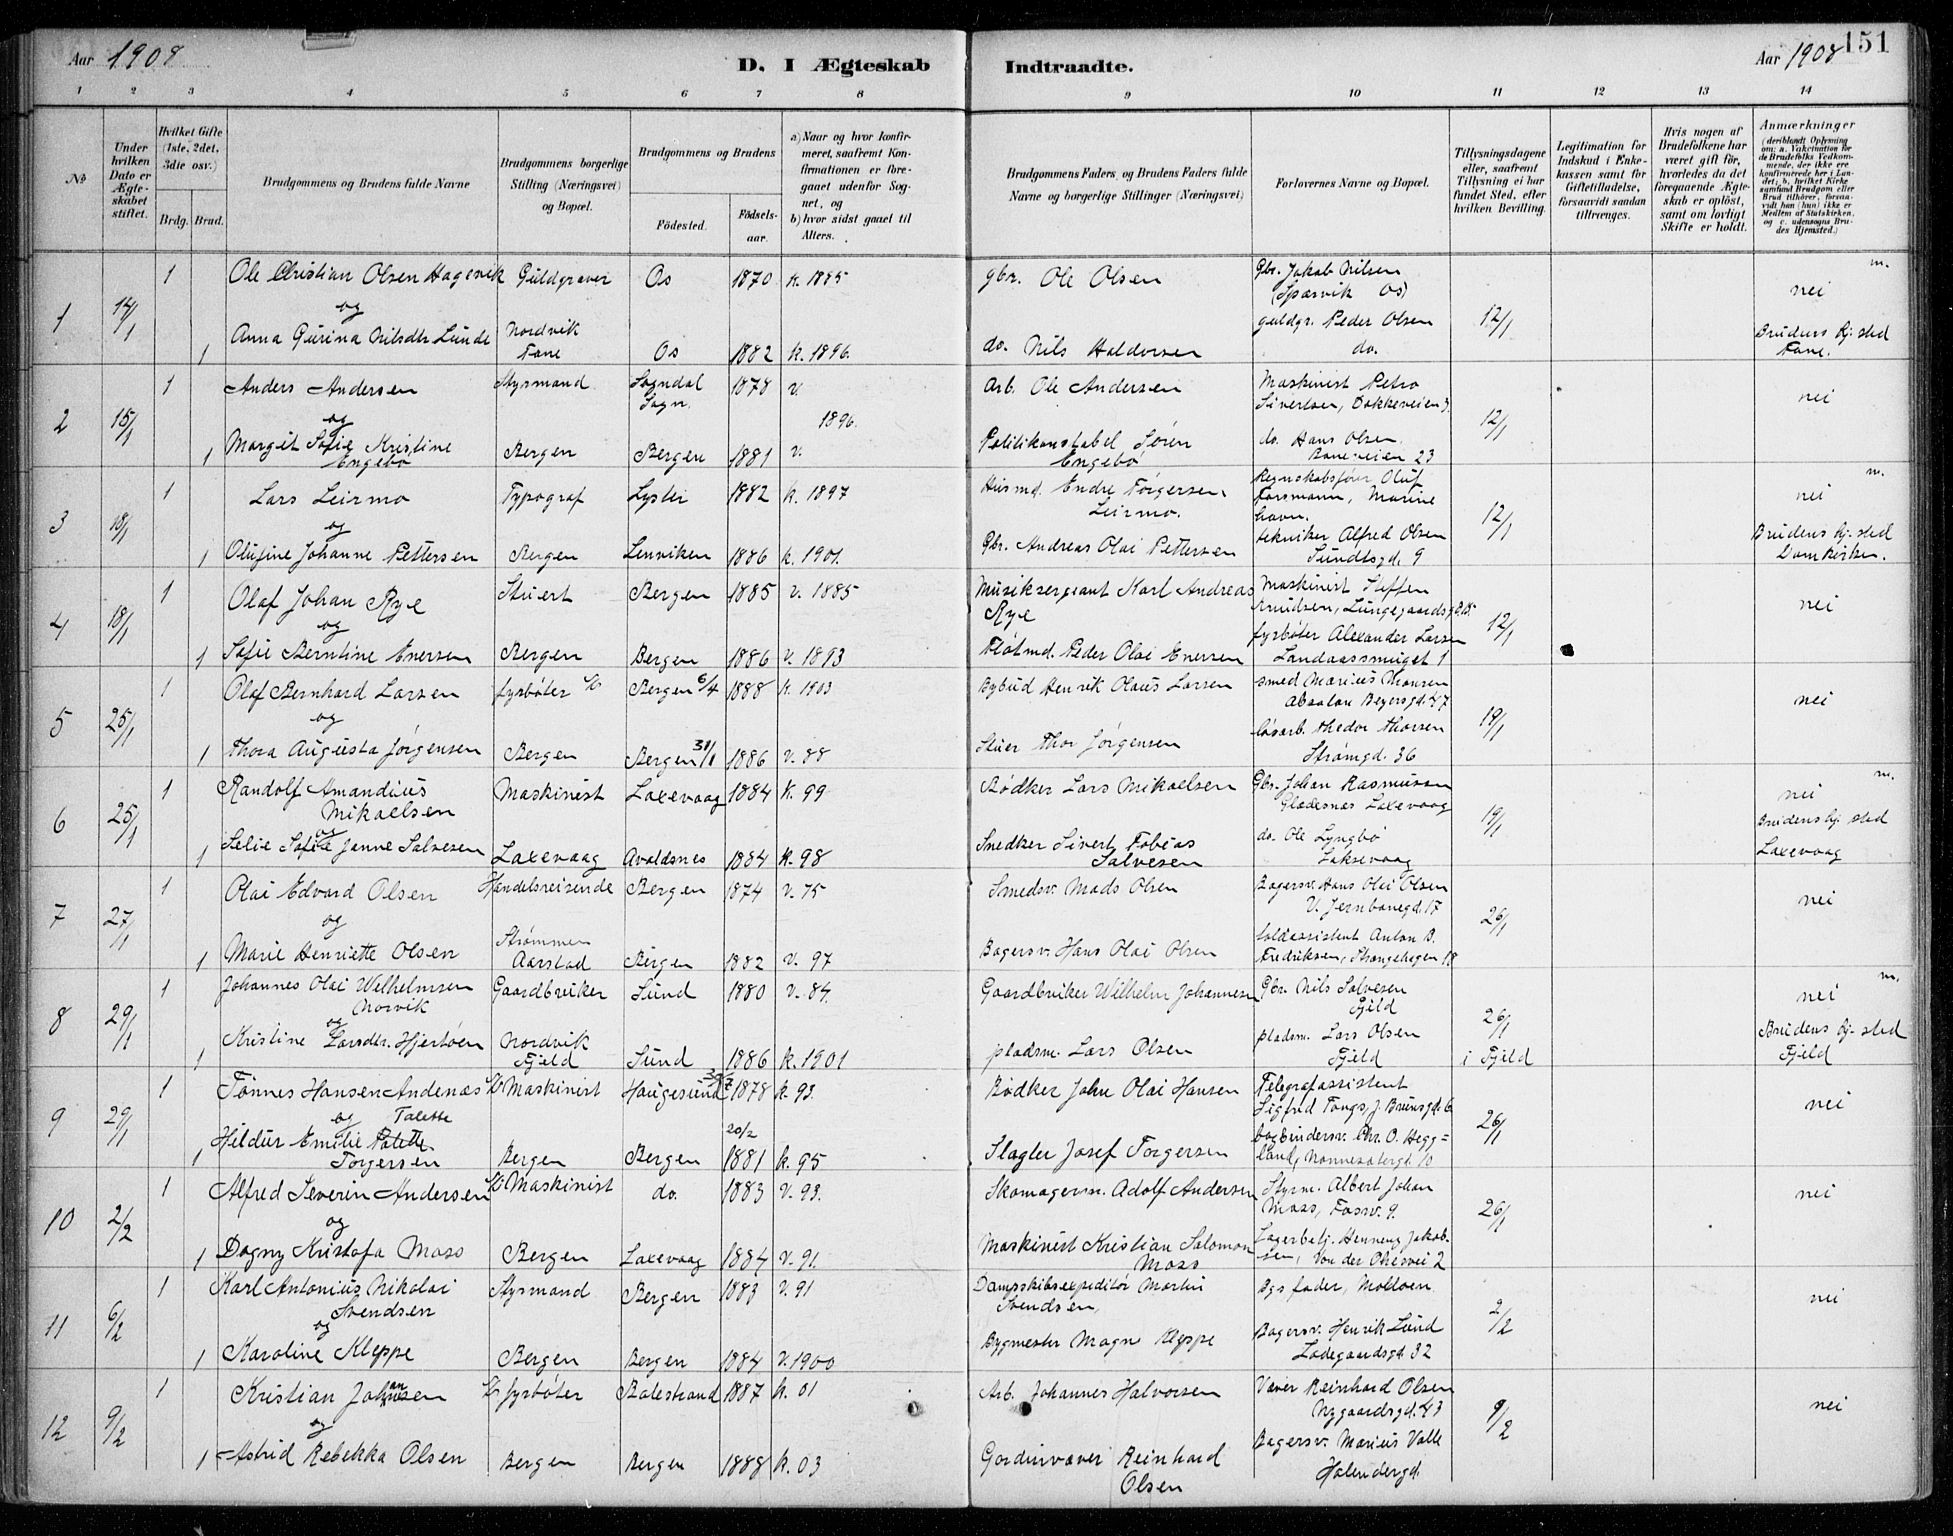 Aar 1908
D. I Ægteskab Indtraadte.
Aar 1908
151
1 2 3 4 5 6 7 8 9 10 11 12 13 14
№
Under hvilken Dato er Ægteskabet stiftet.
Hvilket Gifte (1ste, 2det, 3die osv.)
Brdg. Brud.
Brudgommens og Brudens fulde Navne
Brudgommens borgerlige Stilling (Næringsvei) og Bopæl.
Brudgommens og Brudens
Fødested.
Fødselsaar.
a) Naar og hvor konfirmeret, saafremt Konfirmationen er foregaaet udenfor Sognet, og
b) hvor sidst gaaet til Alters.
Brudgommens Faders og Brudens Faders fulde Navne og borgerlige Stillinger (Næringsvei)
Forlovernes Navne og Bopæl.
Tillysningsdagene eller, saafremt Tillysning ei har fundet Sted, efter hvilken Bevilling.
Legitimation for Indskud i Enkekassen samt for Giftetilladelse, forsaavidt saadan tiltrænges.
Hvis nogen af Brudefolkene har været gift før, hvorledes da det foregaaende Ægteskab er opløst, samt om lovligt Skifte er holdt.
Anmærkninger
(deriblandt Oplysning om: a. Vakcination for de Brudefolks Vedkommende, der ikke ere konfirmerede her i Landet; b. hvilket Kirkesamfund Brudgom eller Brud tilhører, forsaavidt han (hun) ikke er Medlem af Statskirken, og c. udensogns Brudes Hjemsted.)
1 14/1 1 Ole Christian Olsen Hagevik Guldgraver Os 1870 k. 1885 gbr. Ole Olsen Gbr. Jakob Nilsen (Spærvik Os) 12/1 nei m.
og
1 Anna Gurina Nilsdtr Lunde Nordvik Fane Os 1882 k. 1896 do. Nils Haldorsen guldgr. Peder Olsen do. Brudens hj. sted Fane.
2 15/1 1 Anders Andersen Styrmand Sogndal Sogn. 1878 v. 1896. Arb. Ole Andersen Maskinist Petro Sivertsen, Dokkeveien 3. 12/1 nei
og
1 Margit Sofie Kristine Engebø Bergen Bergen 1881 v. Politikonstabel Søren Engebø do. Hans Olsen. Baneveien 23
3 18/1 1 Lars Leirmo Typograf Lyster 1882 k. 1897 Husmd. Endre Torgersen Leirmo. Regnskabsfører Oluf Forsmann, Marinehavn. 12/1 nei m.
og
1 Olufine Johanne Pettersen Bergen Lenviken 1886 k. 1901. Gbr. Andreas Olai Pettersen tekniker Alfred Olsen Sundtsgd. 9 Brudens hj. sted Domkirken.
4 18/1 1 Olaf Johan Rye Stuert Bergen 1885 v. 1885 Musiksergeant Karl Andreas Rye Maskinist Steffen Knudsen, Lungegaardsgd. 12/1 nei
og
1 Sofie Berntine Enersen Bergen Bergen 1886 v. 1893 Fløtmd. Peder Olai Enersen fyrbøter Alexander Larsen Landaassmuget 1
5 25/1 1 Olaf Bernhard Larsen fyrbøter Bergen 6/4 1888 k. 1903 Bybud Henrik Olaus Larsen smed Marius Monsen Absalon Beyersgd. 47 19/1 nei
og
1 Thora Augusta Jørgensen Bergen Bergen 31/1 1886 v. 88 Stuer Thor Jørgensen løsarb. Thedor Thorsen Strømgd. 36
6 25/1 1 Randolf Amandius Mikaelsen Maskinist Laxevaag 1884 k. 99 Bødker Lars Mikaelsen Gbr. Johan Rasmussen Gladesnæs Laxevaag 19/1 nei m.
og
1 Selie Sofie Janne Salvesen Laxevaag Avaldsnes 1884 k. 98 Snedker Sivert Tobias Salvesen do. Ole Lyngbø Laksevaag Brudens hj. sted Laxevaag
7 27/1 1 Olai Edvard Olsen Handelsreisende Bergen 1874 v. 75 Smedsv. Mads Olsen Bagersv. Hans Olai Olsen V. Jernbanegd. 17 26/1 nei
og
1 Marie Henriette Olsen Strømmen Aarstad Bergen 1882 v. 97 Bagersv. Hans Olai Olsen toldassistent Anton B. Fredriksen, Strangehagen 18
8 29/1 1 Johannes Olai Wilhelmsen Norvik Gaardbruker Sund 1880 v. 84. Gaardbruker Wilhelm Johannesen Gbr. Nils Salvesen Fjeld 26/1 i Fjeld nei m.
og
1 Kristine Larsdtr. Hjertøen Nordvik Fjeld Sund 1886 k. 1901 pladsm. Lars Olsen pladsm. Lars Olsen Fjeld Brudens hj. sted Fjeld
9 29/1 1 Tønnes Hansen Andenæs Maskinist Haugesund 1878 k. 93. Bødker John Olai Hansen Telegrafassistent Sigfred Tongs, J. Bruunsgd. 6. 26/1 nei
og Talette
1 Hildur Emilie Torgersen Bergen Bergen 20/2 1881 k. 95 Slagter Josef Torgersen bogbindersv. Chr. O. Heggland, Nonnesætergd. 10
10 2/2 1 Alfred Severin Andersen Maskinist do. 1883 v. 93. Skomagerm. Adolf Andersen Styrm. Albert Johan Moss, Fossv. 9. 26/1 nei
og
1 Dagny Kristofa Moss Bergen Laxevaag 1884 v. 91. Maskinist Kristian Salomon Moss Lagerbetj. Henning Jakobsen, Von der Ohesvei 2
11 6/2 1 Karl Antonius Nikolai Svendsen Styrmand Bergen 1883 v. 91 Dampskibsexpeditør Martin Svendsen, Bgs fader, Moldøen 2/2 nei
og
1 Karoline Kleppe Bergen Bergen 1884 v. 1900 Bygmester Magn Kleppe Bagersv. Henrik Lund Ladegaardsgd. 32
12 9/2 1 Kristian Johansen fyrbøter Balestrand 1887 k. 01 Arb. Johannes Halvorsen Væver Reinhard Olsen Nygaardsgd. 43 9/2 nei
og
1 Astrid Rebekka Olsen Bergen Bergen 1888 k. 03 Gardinvæver Reinhard Olsen Bagersv. Marius Valle Halendergd.